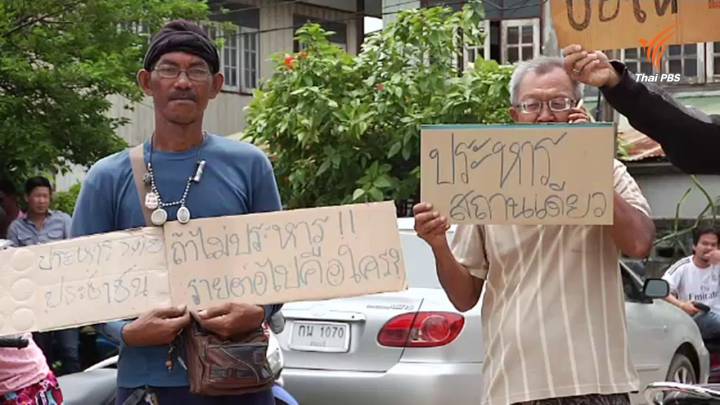 Thai PBS
ประหาร
ประชาชน
ถ้าไม่ประหาร!!
รายต่อไปคือใคร?
ประหาร
สถานเดียว
กน 1070
Fly
Emirates